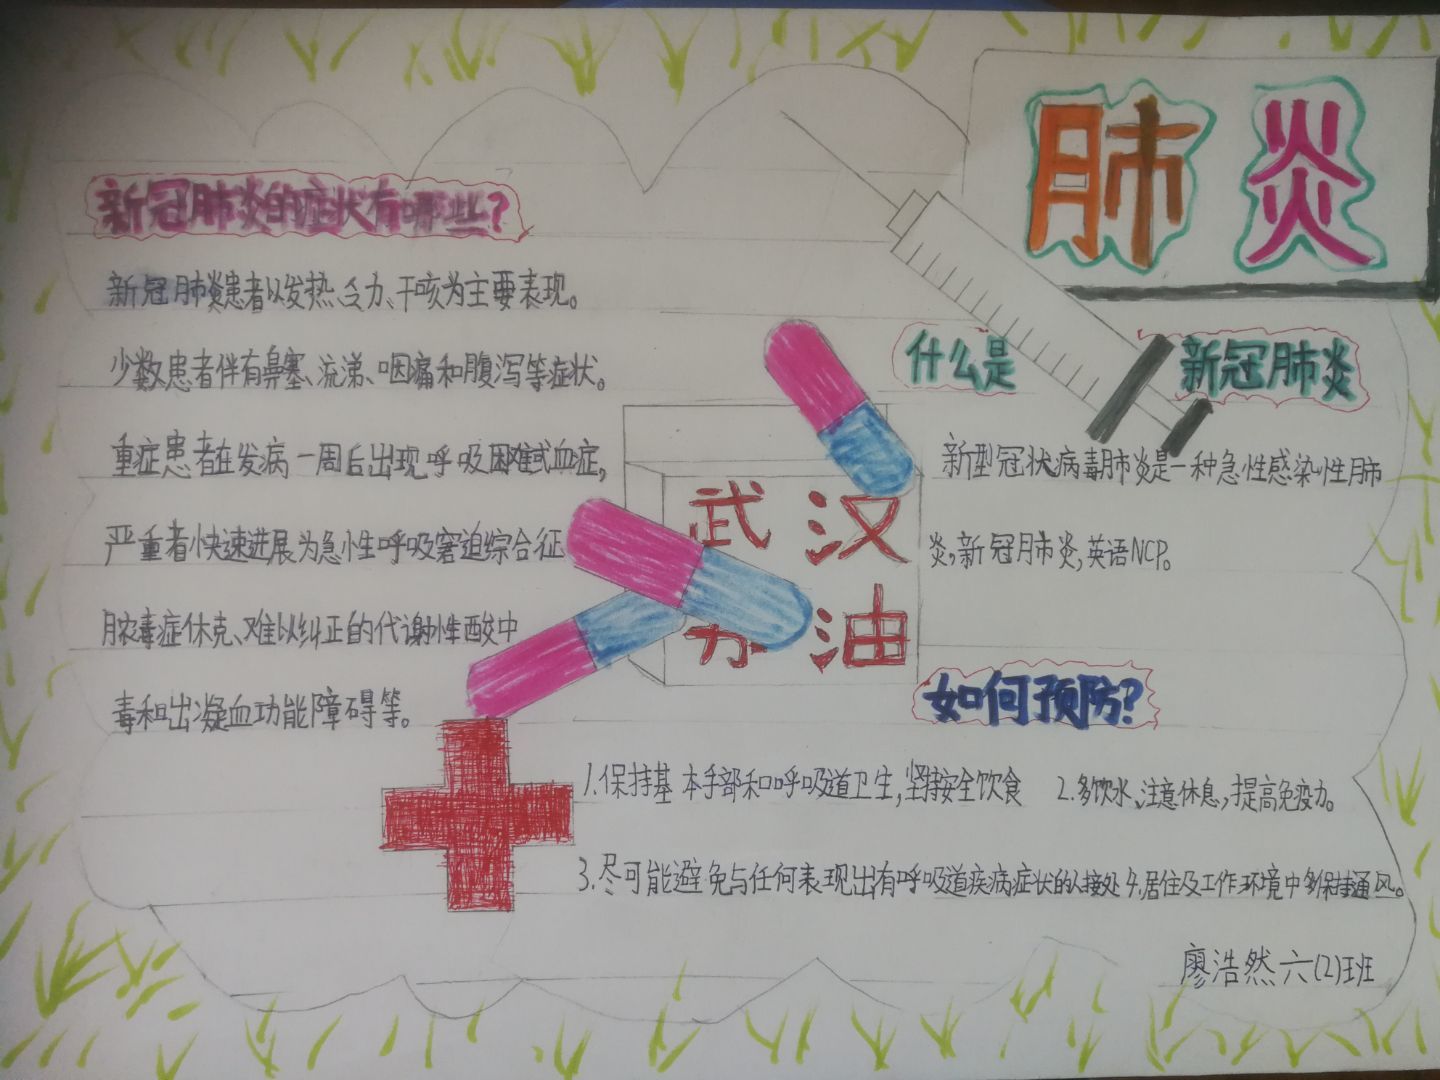 肺炎
新冠肺炎的症状有哪些?
新冠肺炎患者以发热、乏力、干咳为主要表现。
少数患者伴有鼻塞、流涕、咽痛和腹泻等症状。
重症患者在发病一周后出现呼吸困难或血症,
严重者快速进展为急性呼吸窘迫综合征
脓毒症休克、难以纠正的代谢性酸中
毒和出凝血功能障碍等。
什么是新冠肺炎
新型冠状病毒肺炎是一种急性感染性肺
炎,新冠肺炎,英语NCP。
武汉
加油
如何预防?
1.保持基本手部和呼吸道卫生,坚持安全饮食 2.多饮水、注意休息,提高免疫力。
3.尽可能避免与任何表现出有呼吸道疾病症状的人接处 4.居住及工作环境中多保持通风。
廖浩然六(2)班